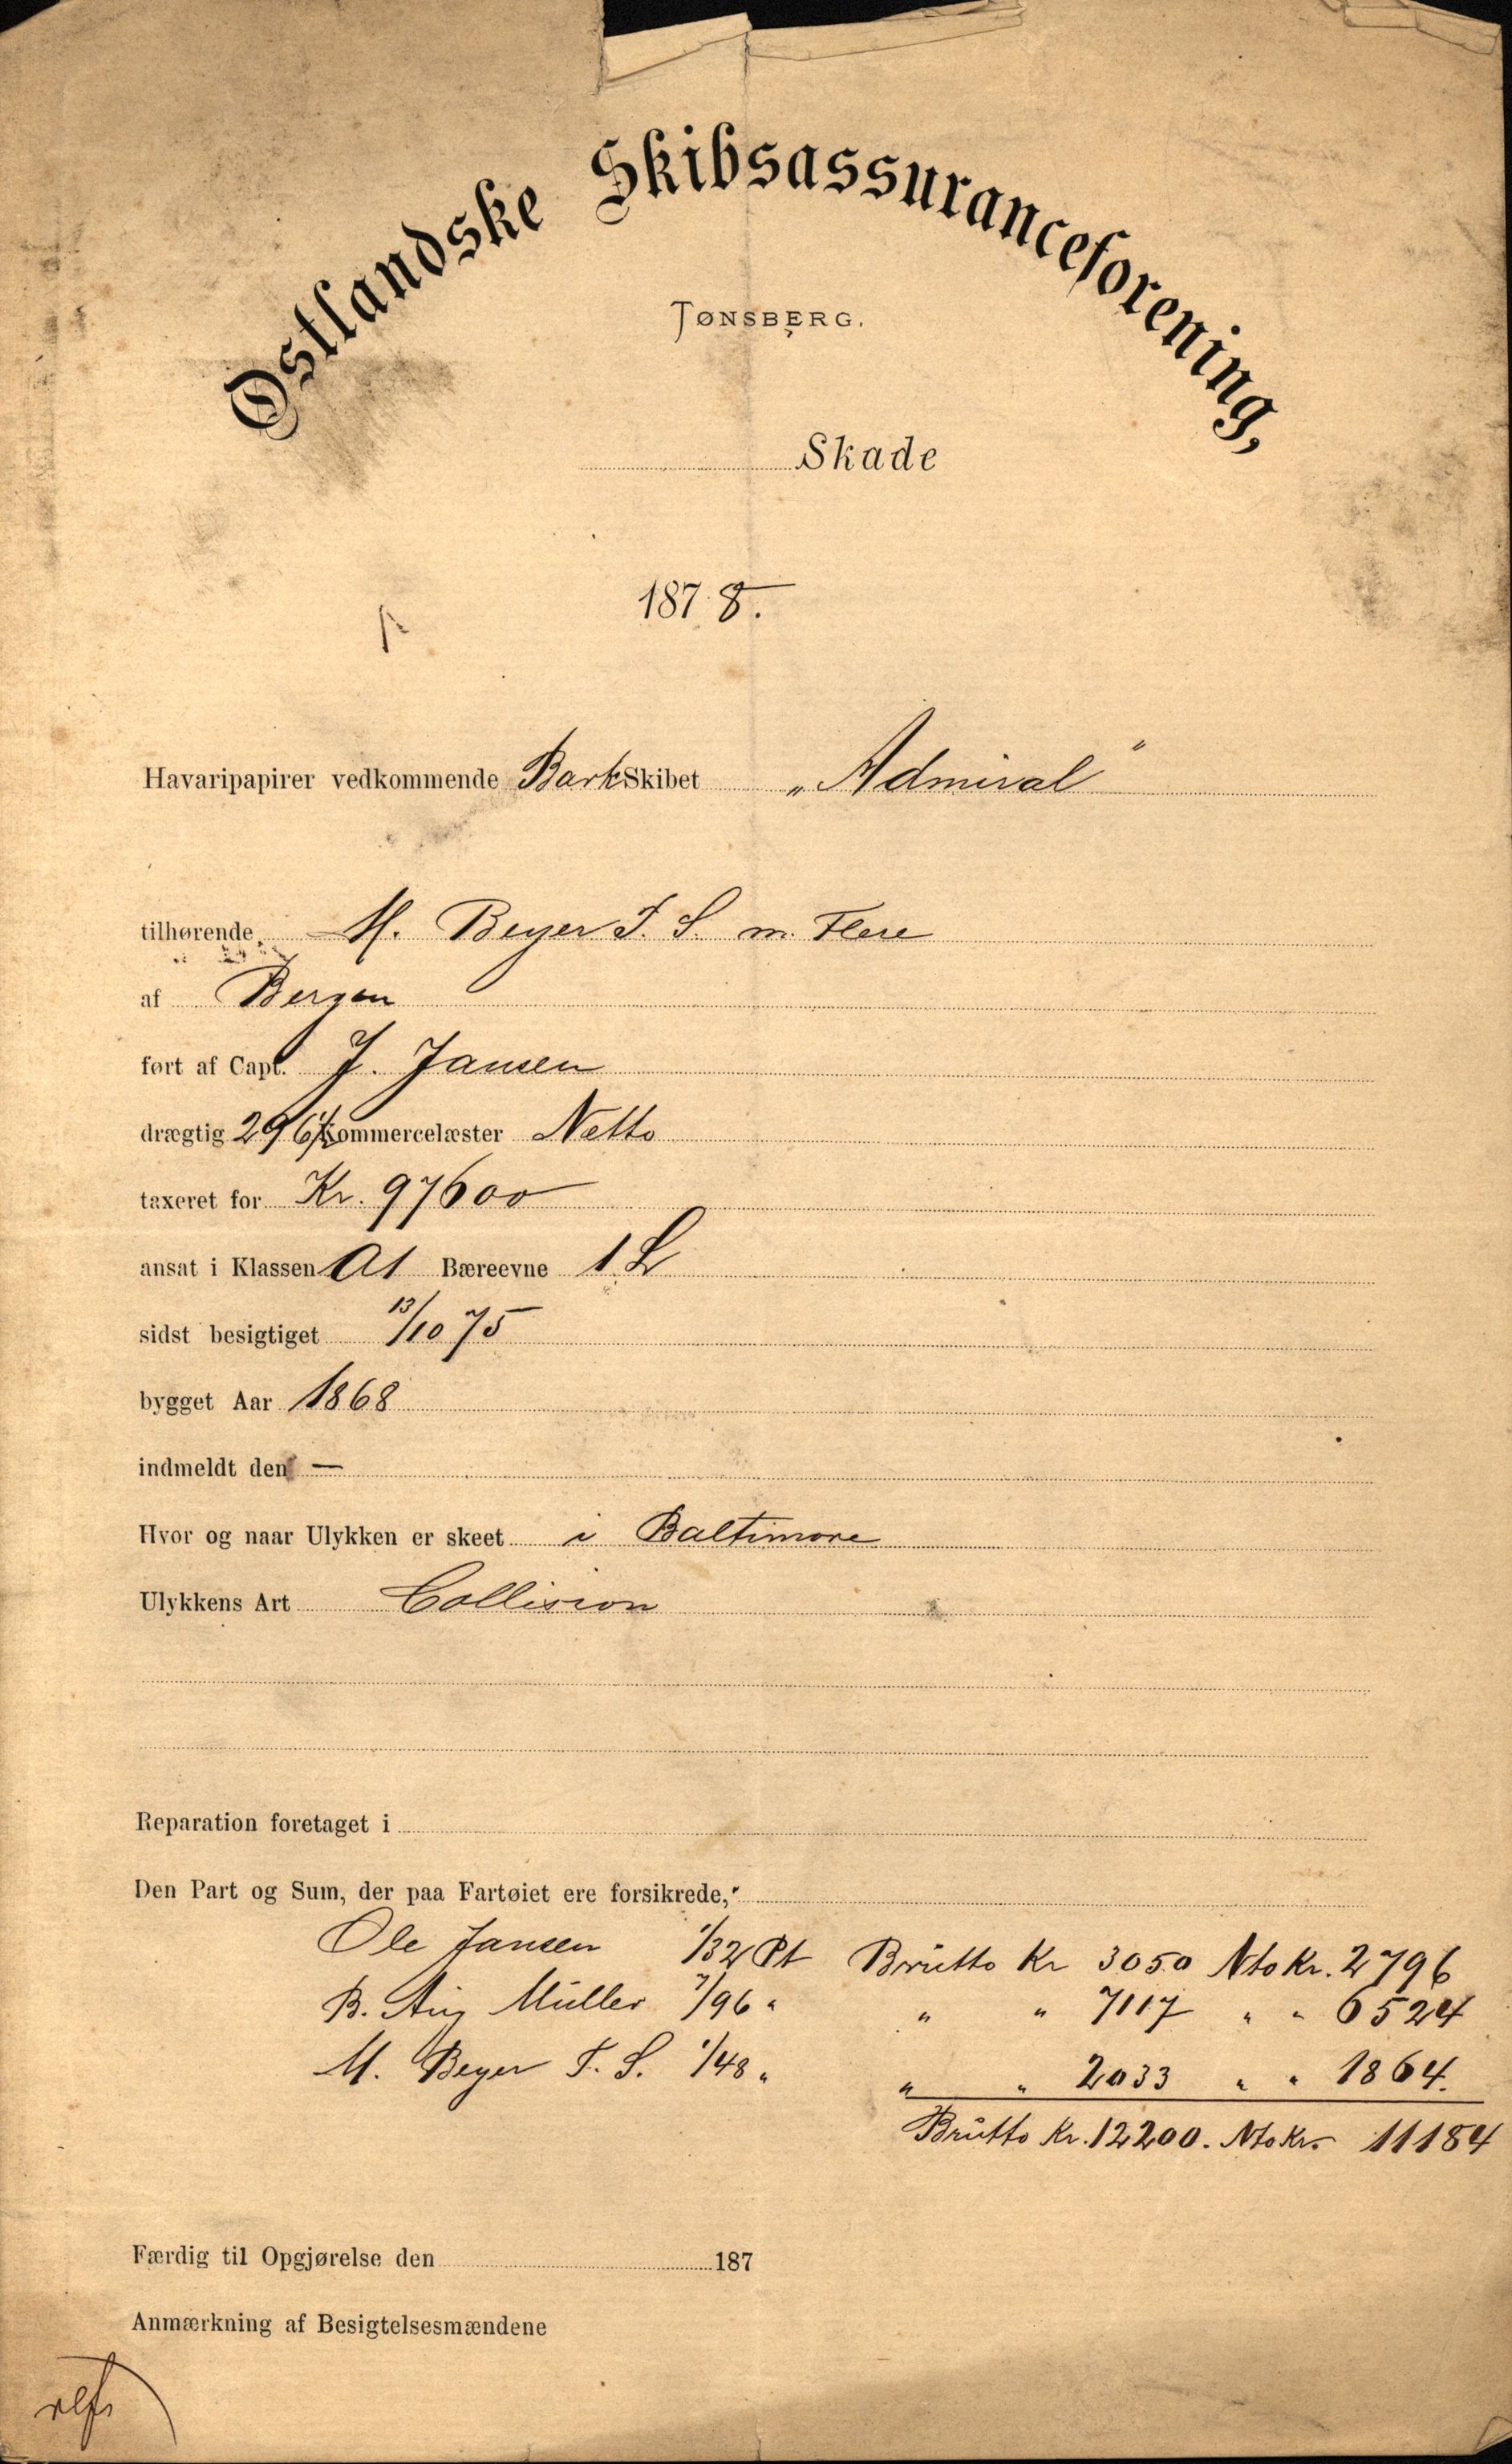 Østlandske Skibsassuranceforening,
TØNSBERG.
Skade
1878.
Havaripapirer vedkommende Bark Skibet „Admiral"
tilhørende M. Beyer T. S. m. Flere
af Bergen
ført af Capt. J. Jansen
drægtig 296½ Kommercelæster Netto
taxeret for Kr. 97600
ansat i Klassen A1 Bæreevne 1. L
sidst besigtiget 13/10 75
bygget Aar 1868
indmeldt den —
Hvor og naar Ulykken er skeet i Baltimore
Ulykkens Art Collision
Reparation foretaget i
Den Part og Sum, der paa Fartøiet ere forsikrede,
Ole Jansen 1/32 Pt Brutto Kr 3050 Nto Kr. 2796
B. Aug Müller 7/96 " " " 7117 " " 6524
M. Beyer T. S. 1/48 " " " 2033 " " 1864.
Brutto Kr. 12200. Nto Kr. 11184
Færdig til Opgjørelse den 187
Anmærkning af Besigtelsesmændene